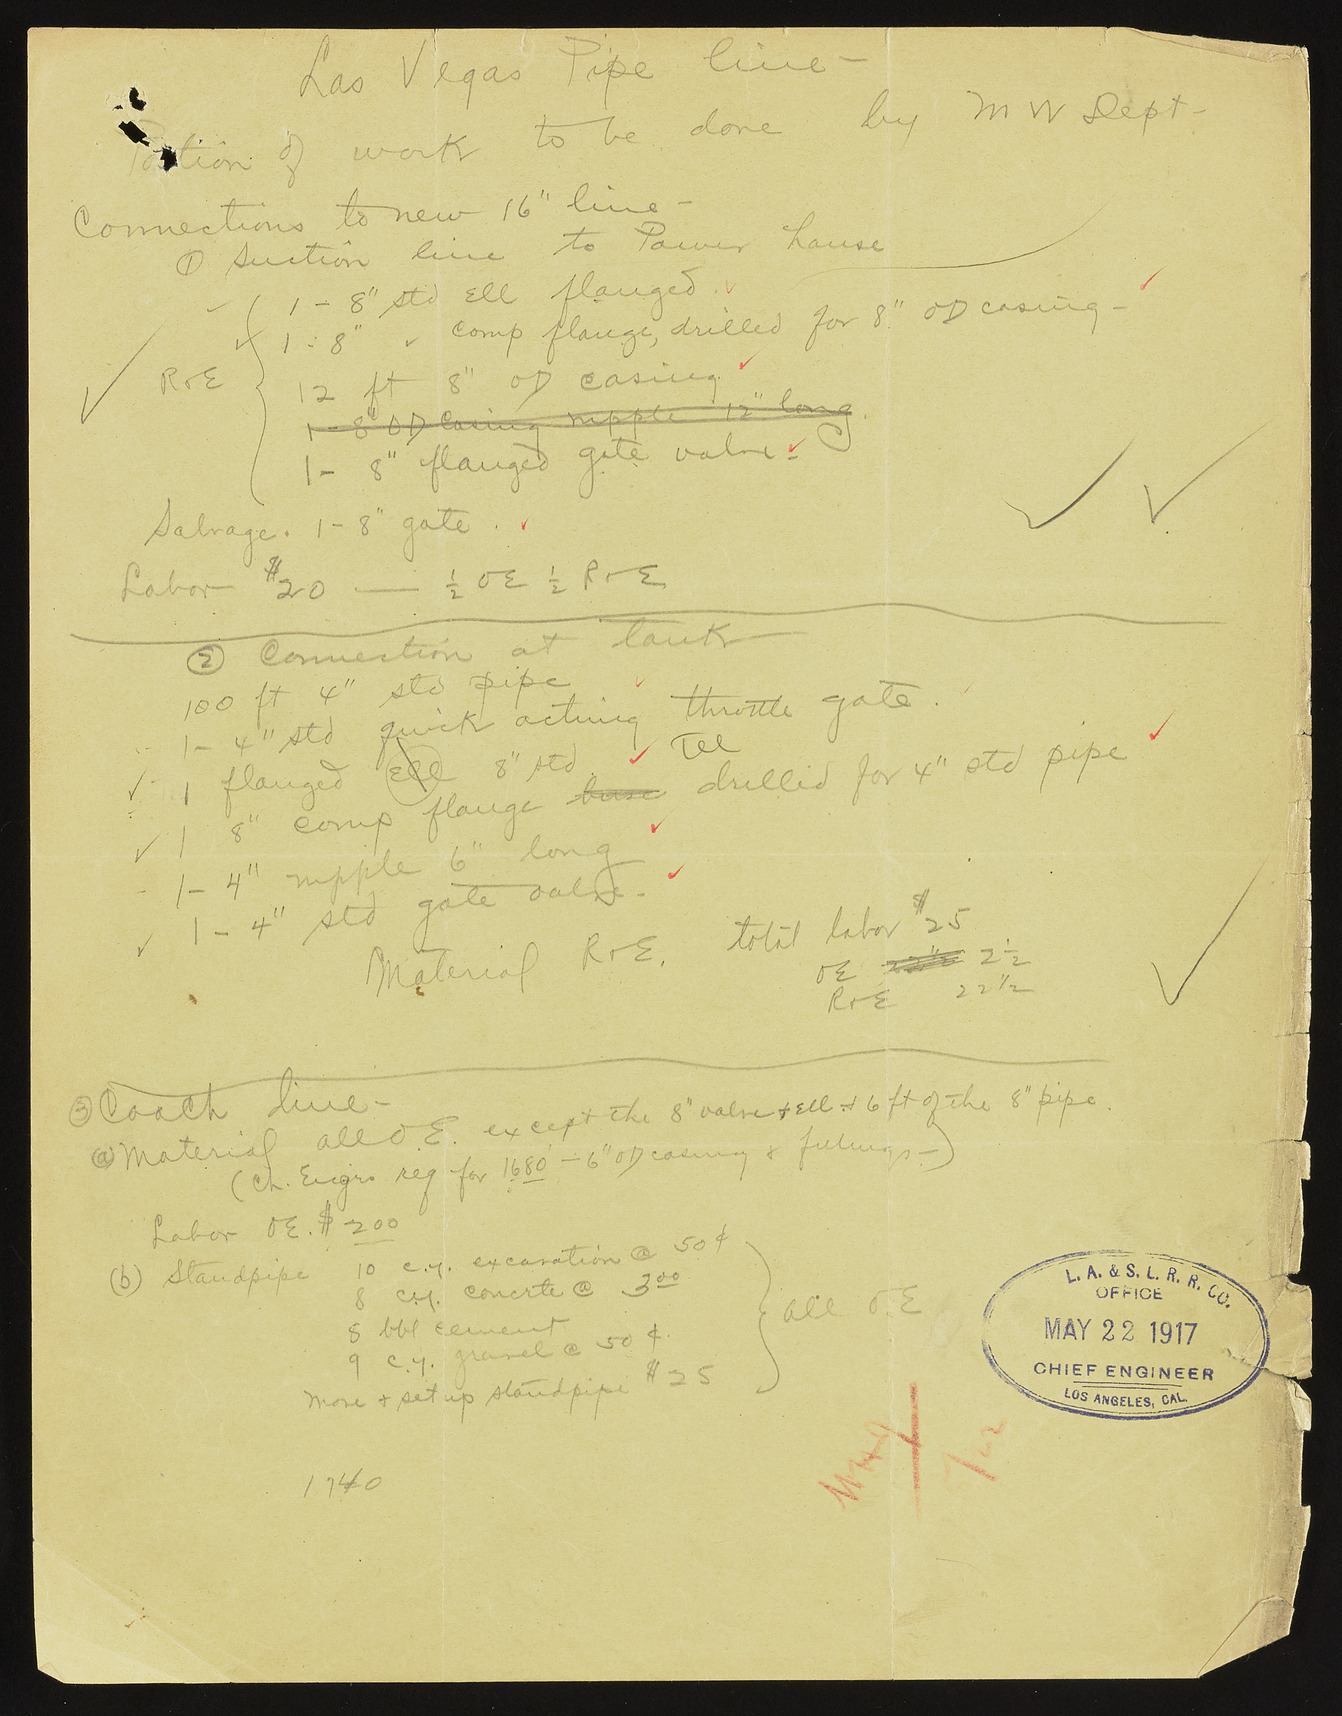 Las Vegas Pipe line -
Portion of work to be done by M W Dept -
Connections to new 16" line -
① Suction line to Power house
1 - 8" std Ell flanged
1 - 8" comp flange, drilled for 8" OD casing -
R+E
12 ft 8" OD casing
1 - 8" OD Casing nipple 12" long.
1 - 8" flanged gate valve -
Salvage. 1 - 8" gate.
Labor $20 — ½ OE ½ R+E
② Connection at tank
100 ft 4" std pipe
1 - 4" std quick acting throttle gate.
1 flanged Ell 8" std. Tee
1 8" comp flange base drilled for 4" std pipe
1 - 4" nipple 6" long
1 - 4" std gate valve -
Material R+E.
total labor $25
OE 2½
R+E 22½
③ Coach line -
(a) Material all O.E. except the 8" valve + Ell + 6 ft of the 8" pipe.
(Ch. Engrs req for 1680' - 6" OD casing & fittings -)
Labor OE. $200
(b) Standpipe 10 c.y. excavation @ 50¢
8 c.y. concrete @ 3.00
8 bbl cement
all O.E
9 c.y. gravel @ 50¢.
Move + set up standpipe $25
1740
L. A. & S. L. R. R. CO.
OFFICE
MAY 22 1917
CHIEF ENGINEER
LOS ANGELES, CAL.
5/22